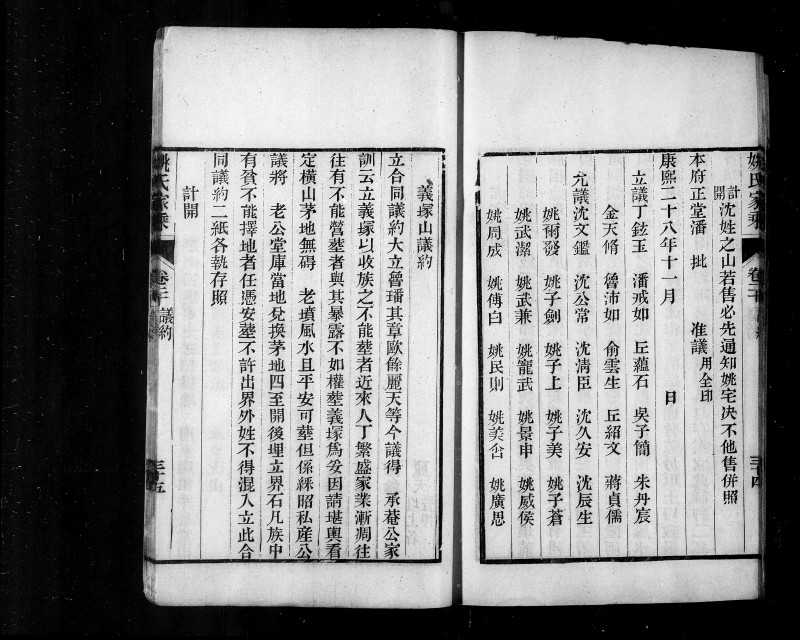 姚氏家乘 卷二十
計開
沈姓之山若售必先通知姚宅决不他售併照
本府正堂潘 批 准議用全印
康熙二十八年十一月 日
立議丁鉉玉 潘戒如 丘蘊石 吳子簡 朱丹宸
金天脩 魯沛如 俞雲生 丘紹文 蔣貞儒
允議沈文鑑 沈公常 沈清臣 沈久安 沈辰生
姚爾發 姚子劍 姚子上 姚子美 姚子蒼
姚武潔 姚武兼 姚寵武 姚景申 姚威侯
姚周成 姚傳白 姚民則 姚美含 姚廣思
義塚山議約
立合同議約大立魯璠其章歐餘麗天等今議得 承菴公家
訓云立義塚以收族之不能塟者近來人丁繁盛家業漸凋往
往有不能營塟者與其暴露不如權塟義塚爲妥因請堪輿看
定橫山茅地無碍 老墳風水且平安可塟但係綵昭私産公
議將 老公堂庫當地兌換茅地四至開後埋立界石凡族中
有貧不能擇地者任憑安塟不許出界外姓不得混入立此合
同議約二紙各執存照
計開
姚氏家乘 卷二十 議約 三十五